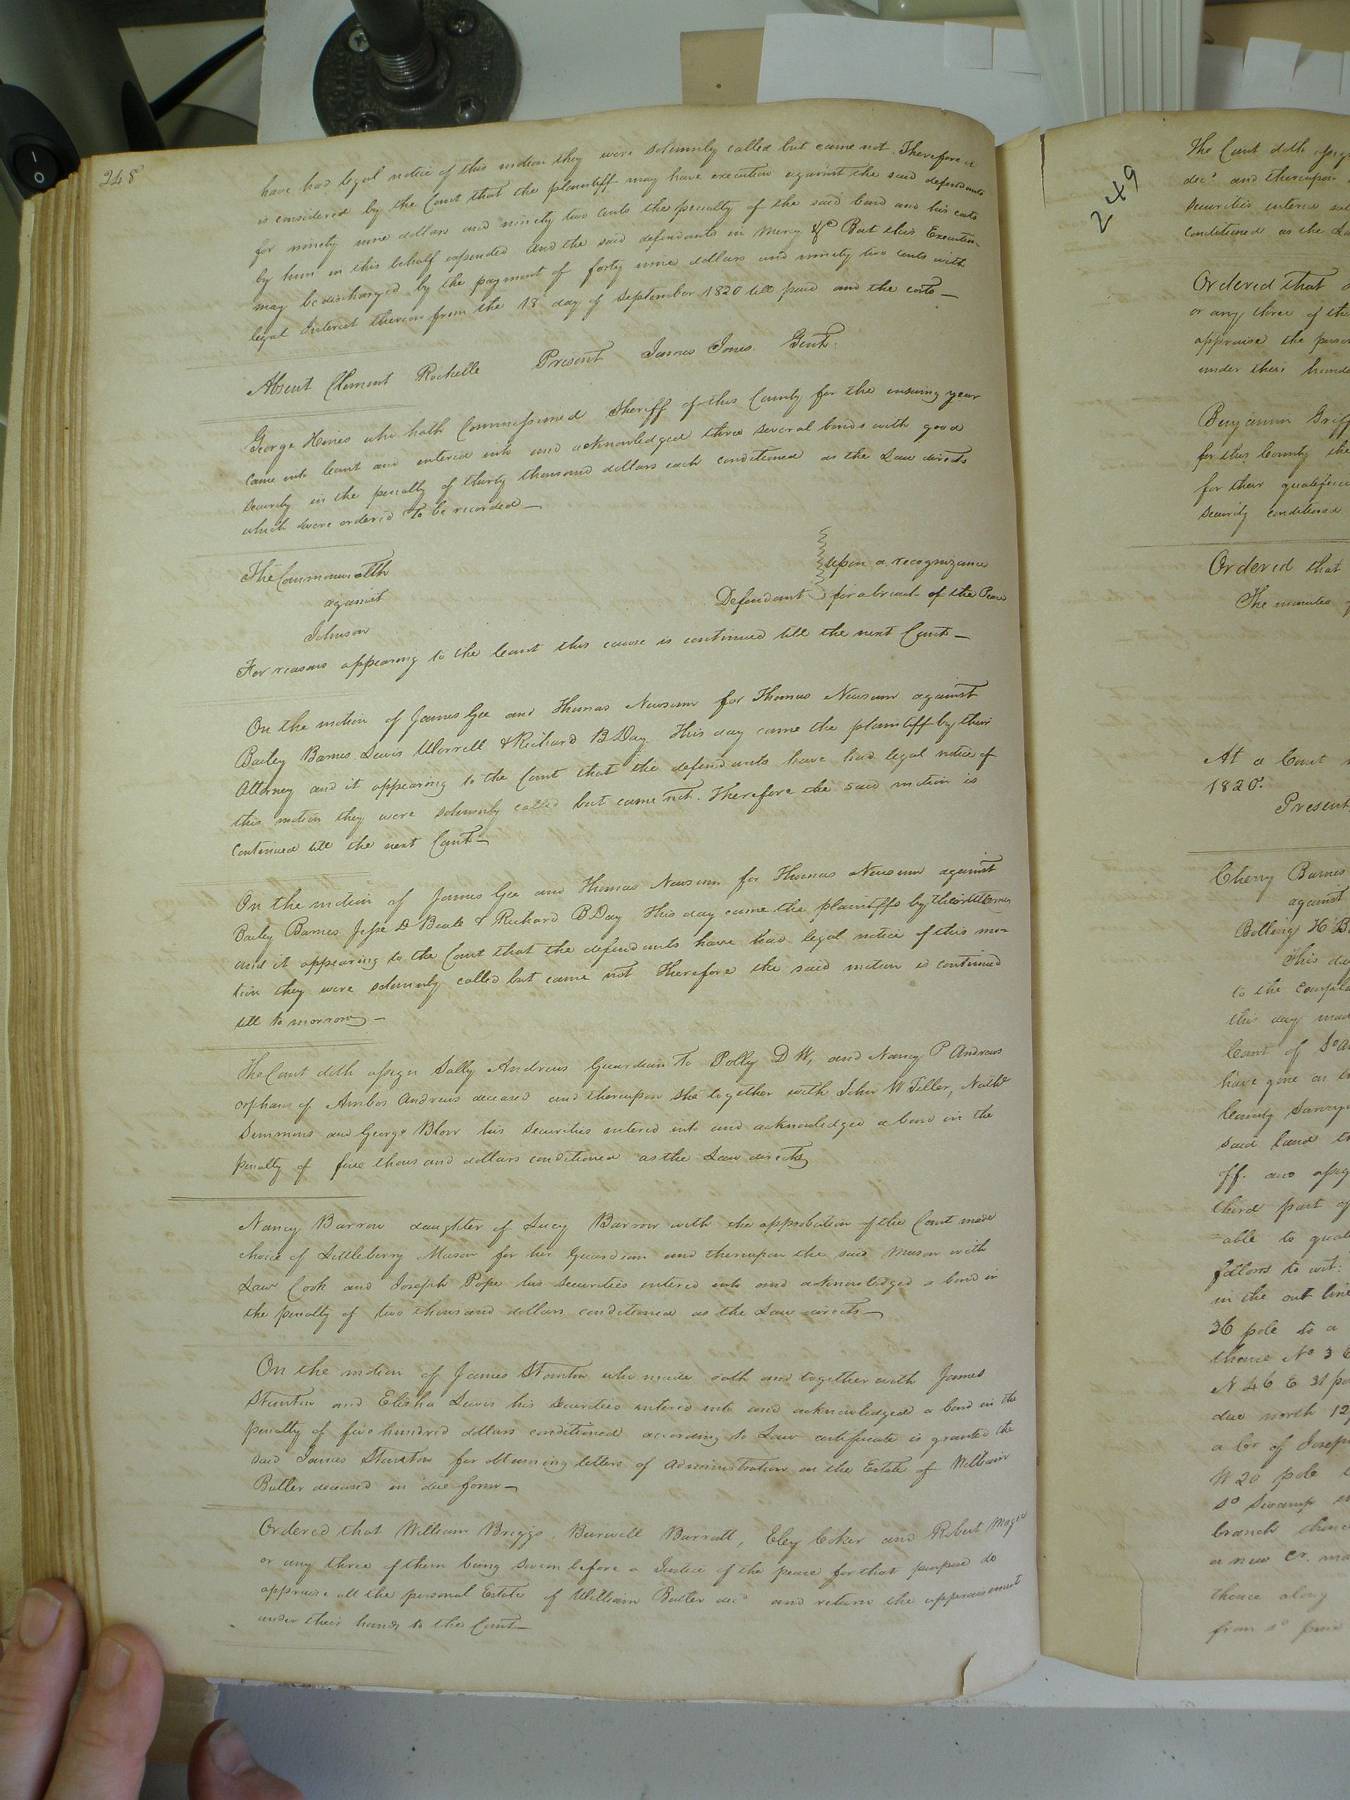 248
have had legal notice of this motion they were solemnly called but came not. Therefore it
is considered by the Court that the plaintiff may have execution against the said defendants
for ninety nine dollars and ninety two cents the penalty of the said bond and his costs
by him in this behalf expended and the said defendants in Mercy &c But this Execution
may be discharged by the payment of forty nine dollars and ninety two cents with
legal Interest thereon from the 18 day of September 1820 till paid and the costs—
Absent Clement Rochelle Present James Jones Gent.
George Hines who hath Commissioned Sheriff of this County for the ensuing year
came into Court and entered into and acknowledged three several bonds with good
security in the penalty of thirty thousand dollars each conditioned as the Law directs
which were ordered to be recorded—
The Commonwealth
against
Johnson
Defendant
upon a recognizance
for a breach of the Peace
For reasons appearing to the Court this cause is continued till the next Court—
On the motion of James Gee and Thomas Newsum for Thomas Newsum against
Bailey Barnes Lewis Worrell & Richard B Day This day came the plaintiff by their
Attorney and it appearing to the Court that the defendants have had legal notice of
this motion they were solemnly called but came not. Therefore the said motion is
continued till the next Court—
On the motion of James Gee and Thomas Newsum for Thomas Newsum against
Bailey Barnes Jesse D Beale & Richard B Day This day came the plaintiffs by their Attorney
and it appearing to the Court that the defendants have had legal notice of this mo-
tion they were solemnly called but came not Therefore the said motion is continued
till to morrow—
The Court doth assign Sally Andrews Guardian to Polly D W, and Nancy P Andrews
orphans of Andrews deceased and thereupon she together with John W Teller, Nathl
Simmons and George Blow his Securities entered into and acknowledged a bond in the
penalty of five thousand dollars conditioned as the Law directs
Nancy Barrow daughter of Lucy Barrow with the approbation of the Court made
choice of Littleberry Mason for her Guardian and thereupon the said Mason with
Law Cook and Joseph Pope his securities entered into and acknowledged a bond in
the penalty of two thousand dollars conditioned as the Law directs—
On the motion of James Stanton who made oath and together with James
Stanton and Elisha Lewis his Securities entered into and acknowledged a bond in the
penalty of five hundred dollars conditioned according to Law certificate is granted the
said James Stanton for obtaining letters of administration on the Estate of William
Butler deceased in due form—
Ordered that William Briggs, Burwell Barrett, Eley Coker and Robert
or any three of them being sworn before a Justice of the peace for that purpose do
appraise all the personal Estate of William Butler decd and return the appraisement
under their hands to the Court—
249
The Court doth
decd and thereupon
securities entered
conditioned as the
Ordered that
or any three of the
appraise the
under their
Benjamin
for this County the
for their
security conditioned
Ordered that
The minutes
At a Court
1820.
Present
Cherry Barnes
against
Bolling H
This
to the
this day
Court of
have gone on
County
said land
off. and
third part of
able to
follows to wit:
in the out line
36 pole to a
thence No 3
N 46 E 31
due north
a Cor of
W 20 pole
so Swamp
branch
a new Cr.
thence along
from sd